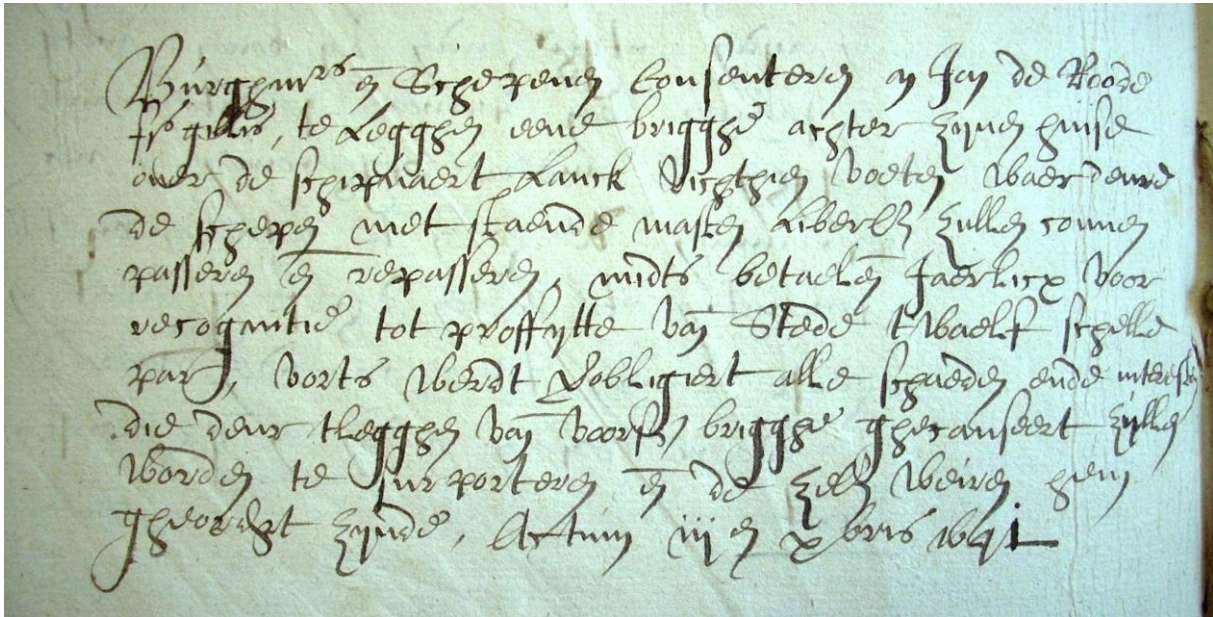 Burghmrs en Schepenen Consenteren an Jan de Roode
fs gillis, te Legghen eene brigghe achter zynen huise
over de schipvaert Lanck vichthien voeten waer deure
de schepen met staende masten liberlick zullen connen
passeren en repasseren, midts betaelen Jaerlicx voor
recognitie tot proffytte van Stede twaelf schelle
par, vorts werdt gobligiert alle schaeden ende interesten
die deur tlegghen van voors brigghe ghecauseert zullen
worden te supporteren en de zelve weiren hem
gheordt zynde, Actum iij en xbris 1641